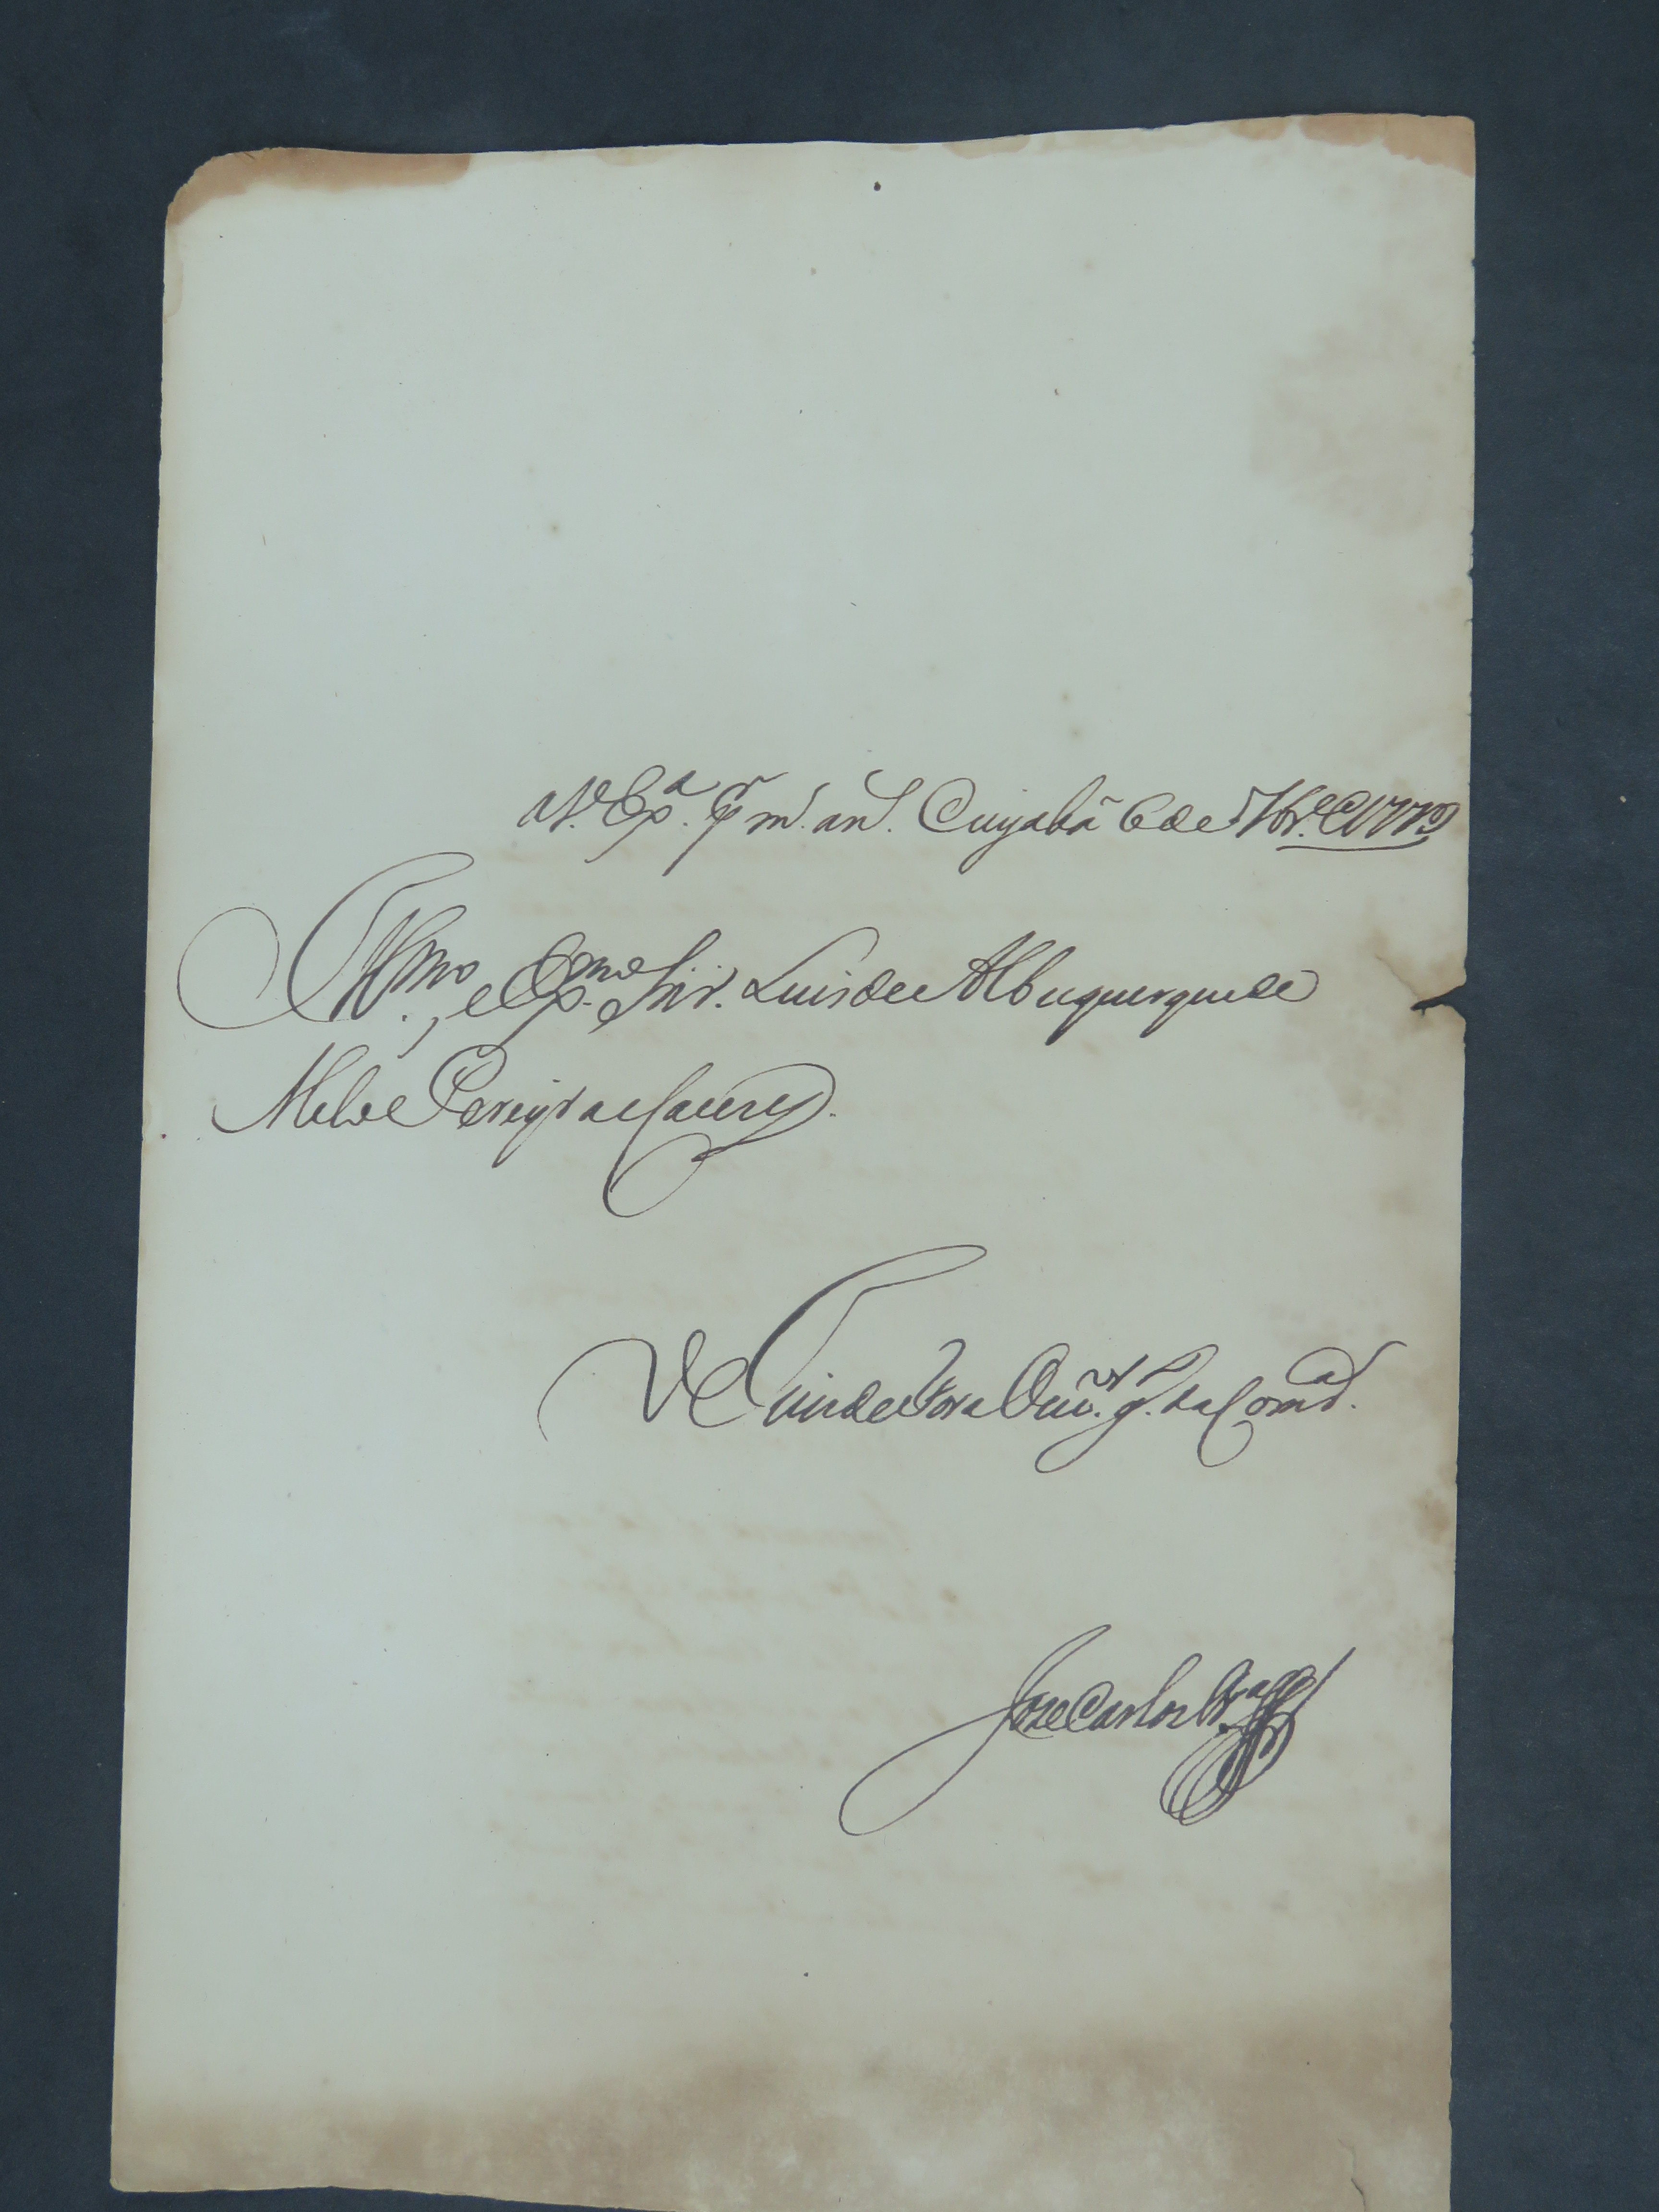 a V. Ex.ª p.r m.s an.s Cuyabá 6 de 7br.º de
Ill.mo, e Ex.mo Snr. Luis de Albuquerque de
Mello Pereyra e Caceres.
O Juis de Fora Ouv.or g.l da Com.ca
Joze Carlos Pr.ª